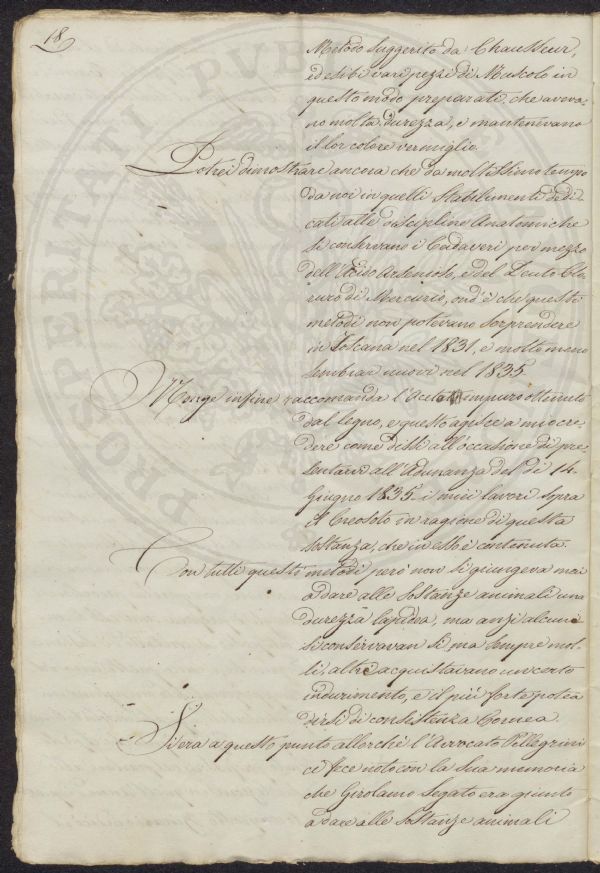 18
Metodo suggerito da Chausseur,
ed esibi vari pezzi di Muscolo in
questo modo preparati, che aveva-
no molta durezza, e mantenevano
il lor colore vermiglio.
Potrei dimostrare ancora che da moltissimo tempo
da noi in quelli Stabilimenti dedi-
cati alle discipline Anatomiche
si conservano i Cadaveri per mezzo
dell'Acido Arsenioso, e del Deuto Clo-
ruro di Mercurio, ond'è che questi
metodi non potevano sorprendere
in Toscana nel 1831, e molto meno
sembrar nuovi nel 1835
Monge infine raccomanda l'Aceto impuro ottenuto
dal legno, e questo agisce a mio cre-
dere come dissi all'occasione di pre-
sentare all'Adunanza del dì 14.
Giugno 1835. i miei lavori sopra
il Creosoto in ragione di questa
sostanza, che in esso è contenuta.
Con tutti questi metodi però non si giungeva mai
a dare alle sostanze animali una
durezza lapidea, ma anzi alcuni
si conservavan sì, ma sempre mol-
li, altre acquistavano un certo
indurimento, e il più forte potea
dirsi di consistenza Cornea.
Si era a questo punto allorchè l'Avvocato Pellegrini
ci fece noto con la sua memoria
che Girolamo Segato era giunto
a dare alle sostanze animali
PROSPERITATI PUBL